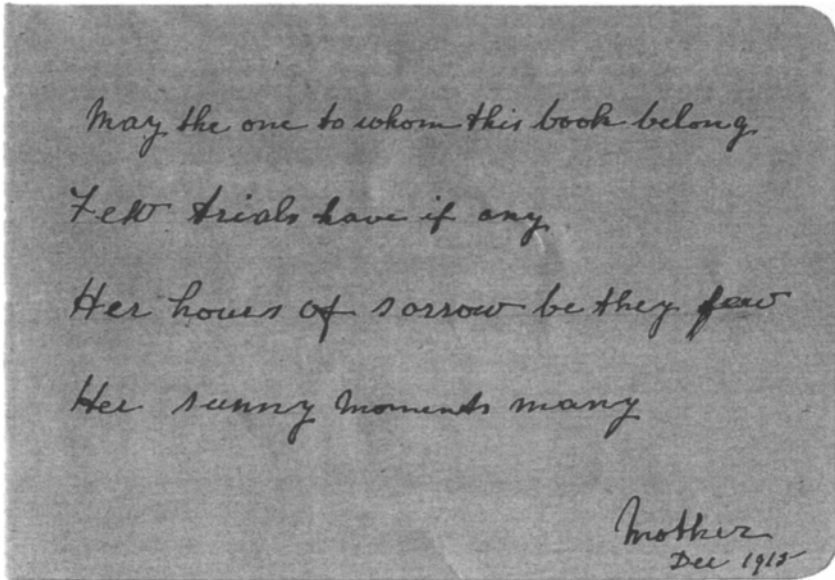 May the one to whom this book belong
Few trials have if any
Her houres of sorrow be they few
Her sunny moments many
Mother
Dec 1915